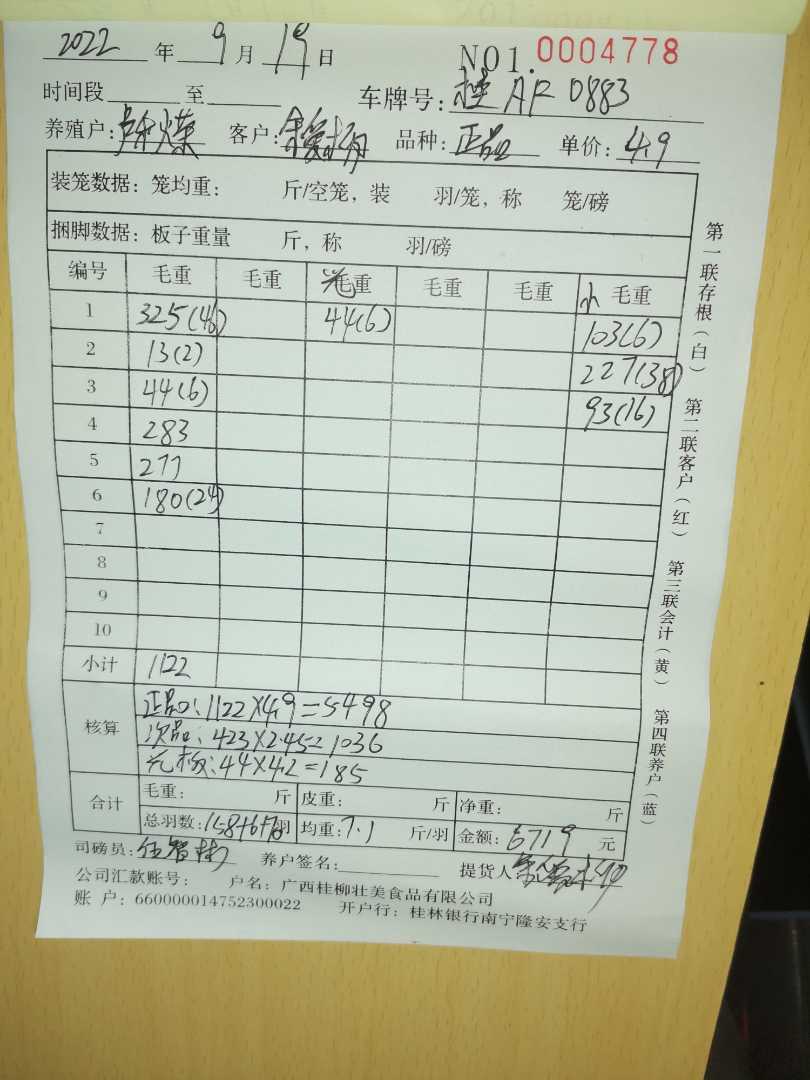 2022 年 9 月 19 日 NO1. 0004778
时间段 至 车牌号: 桂 AF 0883
养殖户: 客户: 品种: 正品 单价: 4.9
装笼数据: 笼均重: 斤/空笼, 装 羽/笼, 称 笼/磅
捆脚数据: 板子重量 斤, 称 羽/磅
编号 毛重 毛重 光毛重 毛重 毛重 小 毛重
1 325(46) 44(6) 103(6)
2 13(2) 227(38)
3 44(6) 93(16)
4 283
5 277
6 180(24)
7
8
9
10
小计 1122
核算 正品: 1122×4.9=5498
次品: 423×2.45=1036
光板: 44×4.2=185
合计 毛重: 斤 皮重: 斤 净重: 斤
总羽数: 158+6+78羽 均重: 7.1 斤/羽 金额: 6719 元
司磅员: 伍智彬 养户签名: 提货人:
公司汇款账号: 户名: 广西桂柳壮美食品有限公司
账 户: 660000014752300022 开户行: 桂林银行南宁隆安支行
第一联存根(白) 第二联客户(红) 第三联会计(黄) 第四联养户(蓝)